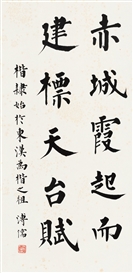 赤城霞起而
建標天台賦
楷隸始於東漢為楷之祖 溥儒